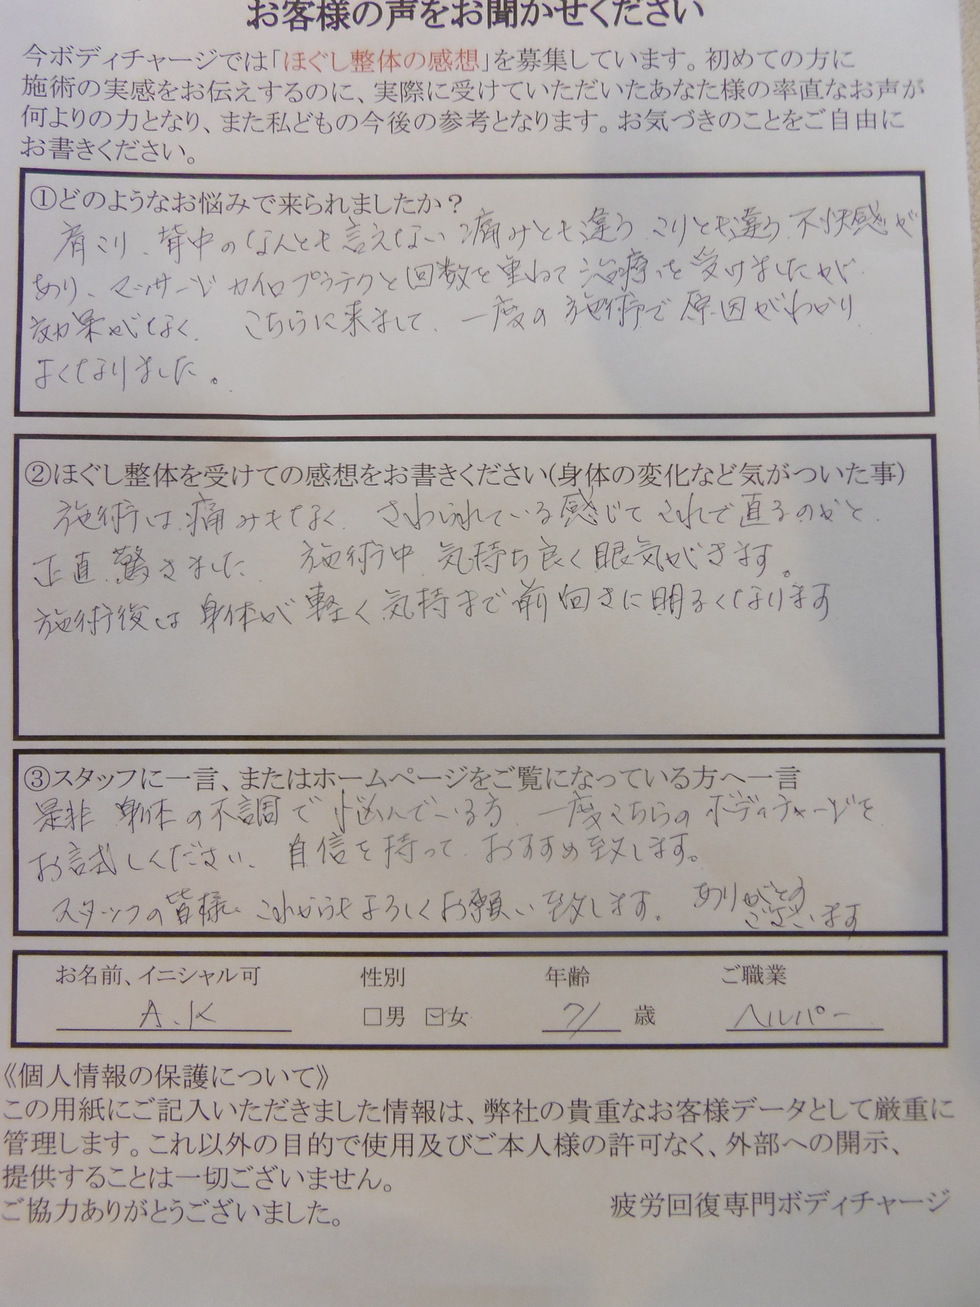 お客様の声をお聞かせください
今ボディチャージでは「ほぐし整体の感想」を募集しています。初めての方に
施術の実感をお伝えするのに、実際に受けていただいたあなた様の率直なお声が
何よりの力となり、また私どもの今後の参考となります。お気づきのことをご自由に
お書きください。
①どのようなお悩みで来られましたか？
肩こり、背中のなんとも言えない痛みとも違うこりとも違う不快感が
あり、マッサージカイロプラテクと回数を重ねて治療を受けましたが
効果がなく こちらに来まして、一度の施術で原因がわかり
よくなりました。
②ほぐし整体を受けての感想をお書きください(身体の変化など気がついた事)
施術は痛みもなく さわられている感じでこれで直るのかと
正直驚きました 施術中気持ち良く眠気がきます。
施術後は身体が軽く気持まで前向きに明るくなります
③スタッフに一言、またはホームページをご覧になっている方へ一言
是非身体の不調で悩んでいる方 一度こちらのボディチャージを
お試しください、自信を持っておすすめ致します。
スタッフの皆様、これからもよろしくお願い致します。ありがとう
ございます
お名前、イニシャル可 性別 年齢 ご職業
A.K □男 ☑女 71 歳 ヘルパー
《個人情報の保護について》
この用紙にご記入いただきました情報は、弊社の貴重なお客様データとして厳重に
管理します。これ以外の目的で使用及びご本人様の許可なく、外部への開示、
提供することは一切ございません。
ご協力ありがとうございました。
疲労回復専門ボディチャージ